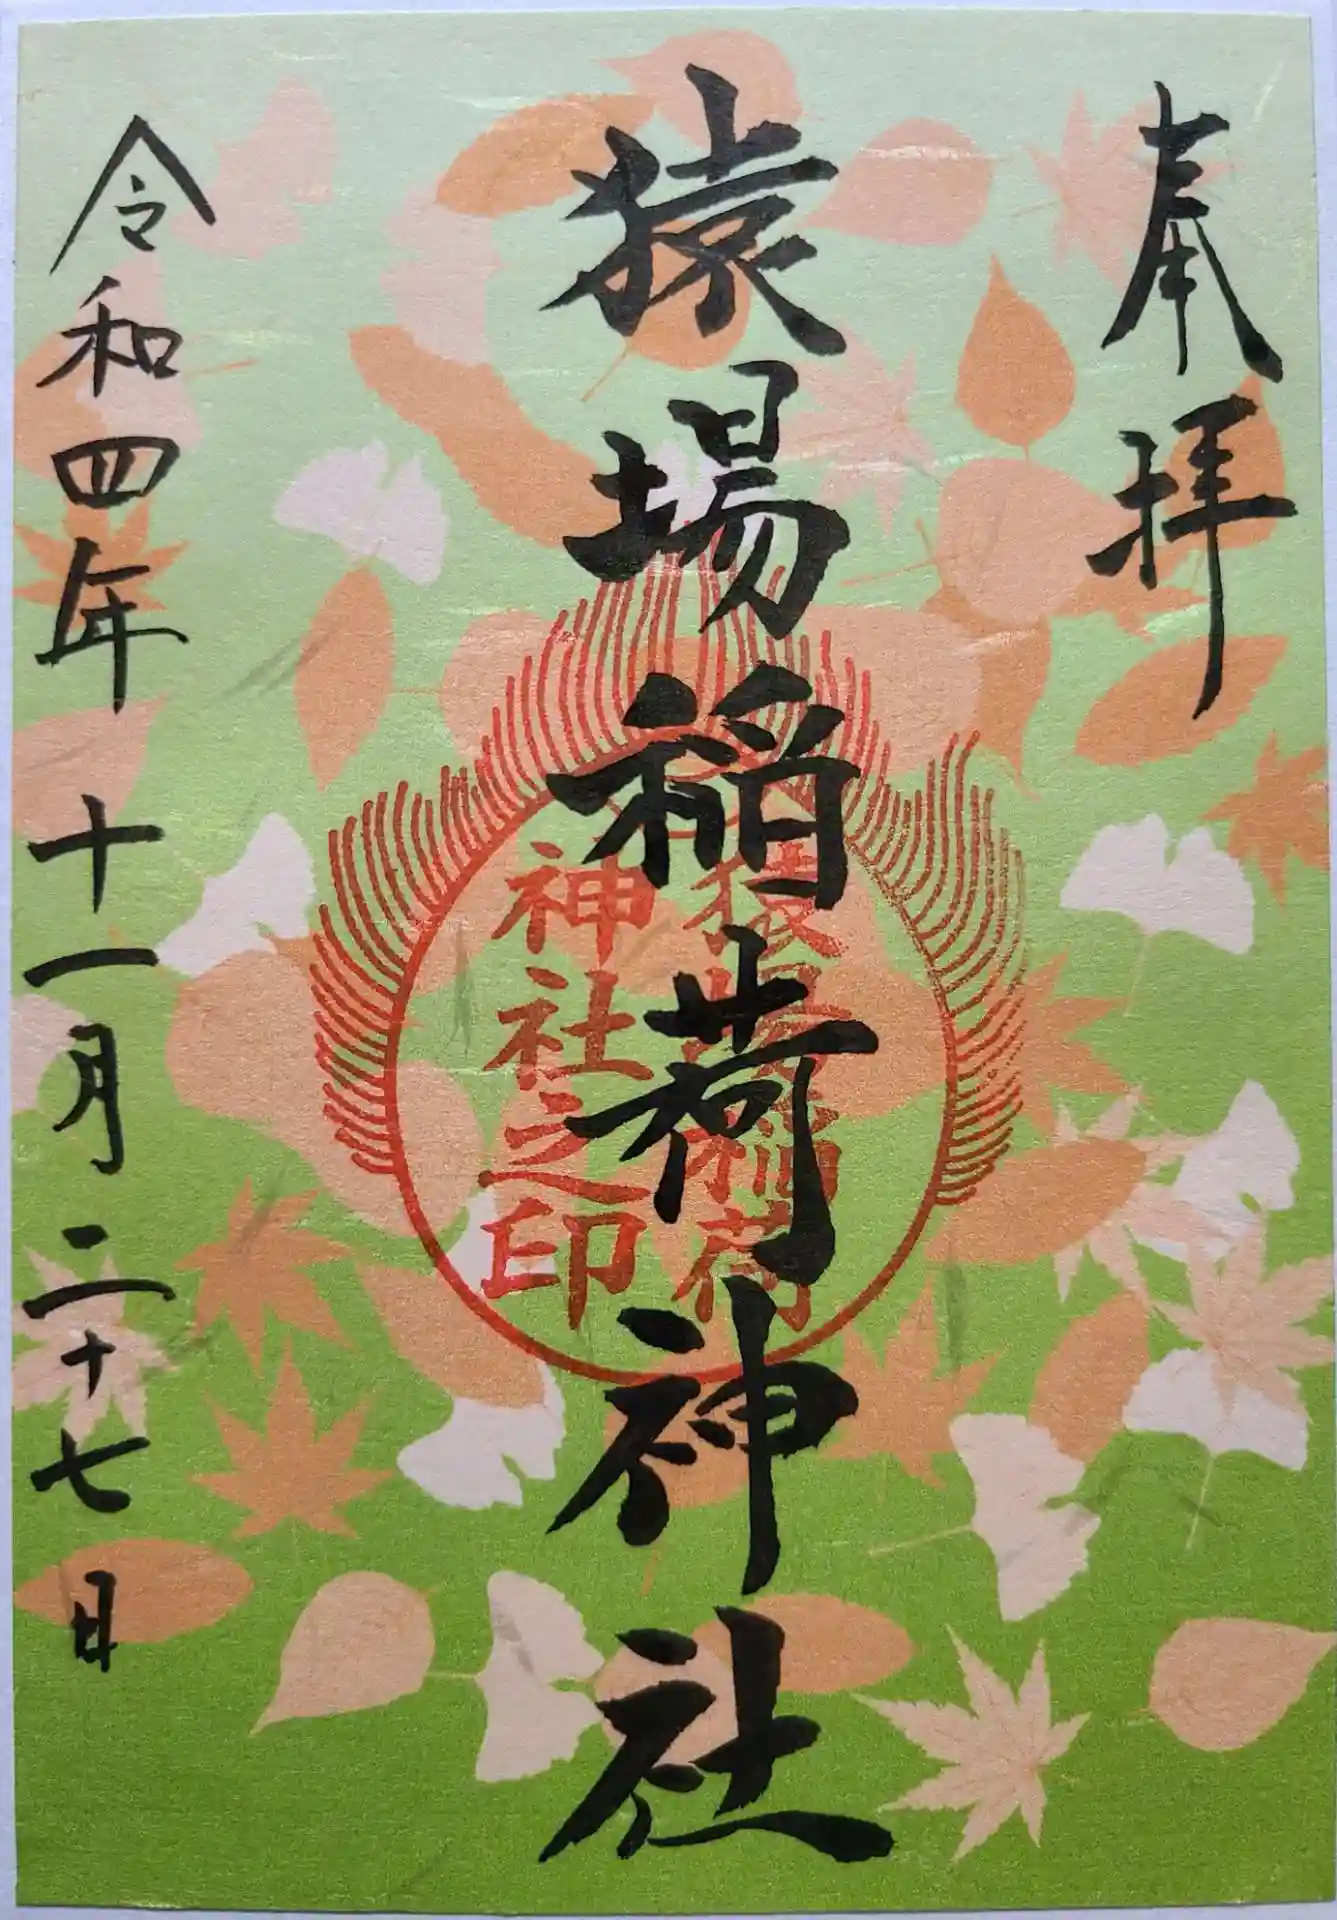 奉拝
猿場稲荷神社
猿場稲荷
神社之印
令和四年十一月二十七日